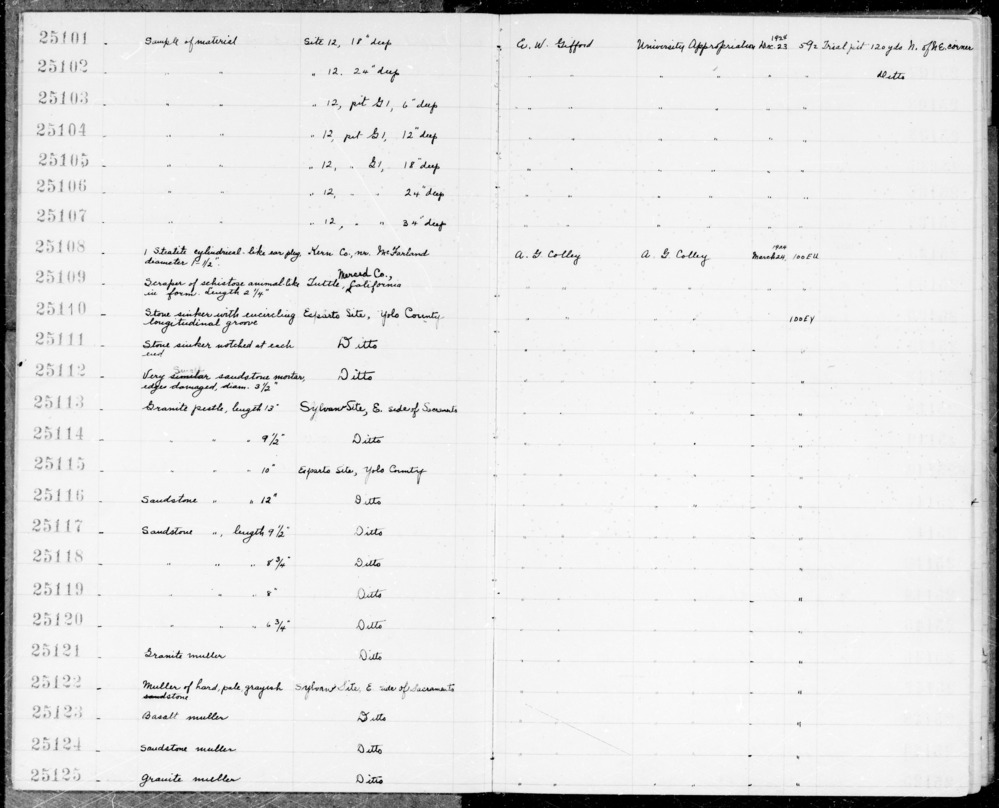 25101 - Sample of material Site 12, 18" deep E. W. Gifford University Appropriation Dec. 23 592 Trial pit 120 yds N. of N.E. corner
25102 - " " " 12. 24" deep " " " " " Ditto
25103 - " " " 12, pit G1, 6" deep " " " " "
25104 - " " " 12, pit G1, 12" deep " " " " "
25105 - " " " 12, " G1, 18" deep " " " " "
25106 - " " " 12, " " 24" deep " " " " "
25107 - " " " 12, " " 34" deep " " " " "
25108 - 1 Steatite cylindrical-like ear plug, Kern Co., nr. McFarland A. G. Colley A. G. Colley 1924 March 24, 100EU
diameter 1 1/2".
25109 - Scraper of schistose animal-like Tuttle, Merced Co., California " " " "
in form. Length 2 1/4"
25110 - Stone sinker with encircling Esparto Site, Yolo County " " " 100EY
longitudinal groove
25111 - Stone sinker notched at each Ditto " " " "
end
25112 - Very similar sandstone mortar, Ditto " " " "
edges damaged, diam. 3 1/2"
25113 - Granite pestle, length 13" Sylvan Site, E. side of Sacramento " " " "
25114 - " " " 9 1/2" Ditto " " " "
25115 - " " " 10" Esparto Site, Yolo County " " " "
25116 - Sandstone " " 12" Ditto " " " "
25117 - Sandstone ", length 9 1/2" Ditto " " " "
25118 - " " " 8 3/4" Ditto " " " "
25119 - " " " 8" Ditto " " " "
25120 - " " " 6 3/4" Ditto " " " "
25121 - Granite muller Ditto " " " "
25122 - Muller of hard, pale, grayish Sylvan Site, E. side of Sacramento " " " "
sandstone
25123 - Basalt muller Ditto "
25124 - Sandstone muller Ditto " " " "
25125 - Granite muller Ditto " " " "